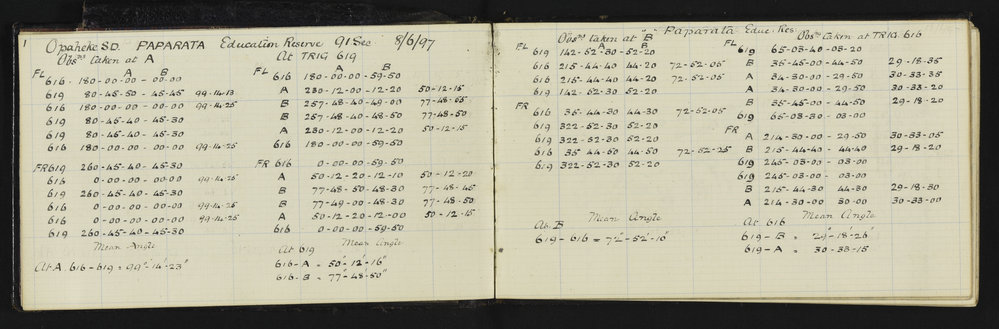 1
Opaheke S.D. PAPARATA Education Reserve 91 Sec 8/6/97
Obsns taken at A
A B
FL 616 180-00-00 - 00-00
619 80-45-50 - 45-45 99-14-13
616 180-00-00 - 00-00 99-14-25
619 80-45-40 - 45-30
619 80-45-40 - 45-30
616 180-00-00 - 00-00 99-14-25
FR 619 260-45-40 - 45-30
616 0-00-00 - 00-00 99-14-25
619 260-45-40 - 45-30
616 0-00-00 - 00-00 99-14-25
616 0-00-00 - 00-00 99-14-25
619 260-45-40 - 45-30
Mean Angle
At A. 616 - 619 = 99°-14'-23"
At TRIG 619
A B
FL 616 180-00-00-59-50
A 230-12-00-12-20 50-12-15
B 257-48-40-49-00 77-48-05
B 257-48-40-48-50 77-48-50
A 230-12-00-12-20 50-12-15
616 180-00-00-59-50
FR 616 0-00-00-59-50
A 50-12-20-12-10 50-12-20
B 77-48-50-48-30 77-48-45
B 77-49-00-48-30 77-48-50
A 50-12-20-12-00 50-12-15
616 0-00-00-59-50
Mean Angle
At 619
616-A = 50°-12'-16"
616-B = 77°-48'-50"
PAPARATA Educ. Res.
Obsns taken at B
A B
FL 619 142-52-30-52-20
616 215-44-40 44-20 72-52-05
616 215-44-40 44-20 72-52-05
619 142-52-30 52-20
FR 616 35-44-30 44-30 72-52-05
619 322-52-30 52-20
619 322-52-30 52-20
616 35 44-60 44-50 72-52-25
619 322-52-30 52-20
Mean Angle
At. B
619-616 = 72°-52'-10"
Obsns taken at TRIG. 616
FL 619 65-03-40-03-20
B 35-45-00-44-50 29-18-35
A 34-30-00-29-50 30-33-35
A 34-30-00-29-50 30-33-20
B 35-45-00-44-50 29-18-20
619 65-03-30-03-00
FR A 214-30-00-29-50 30-33-05
B 215-44-40-44-40 29-18-20
619 245-03-00-03-00
619 245-03-00-03-00
B 215-44-30 44-30 29-18-30
A 214-30-00 30-00 30-33-00
Mean Angle
At 616
619-B = 29°-18'-26"
619-A = 30-33-15